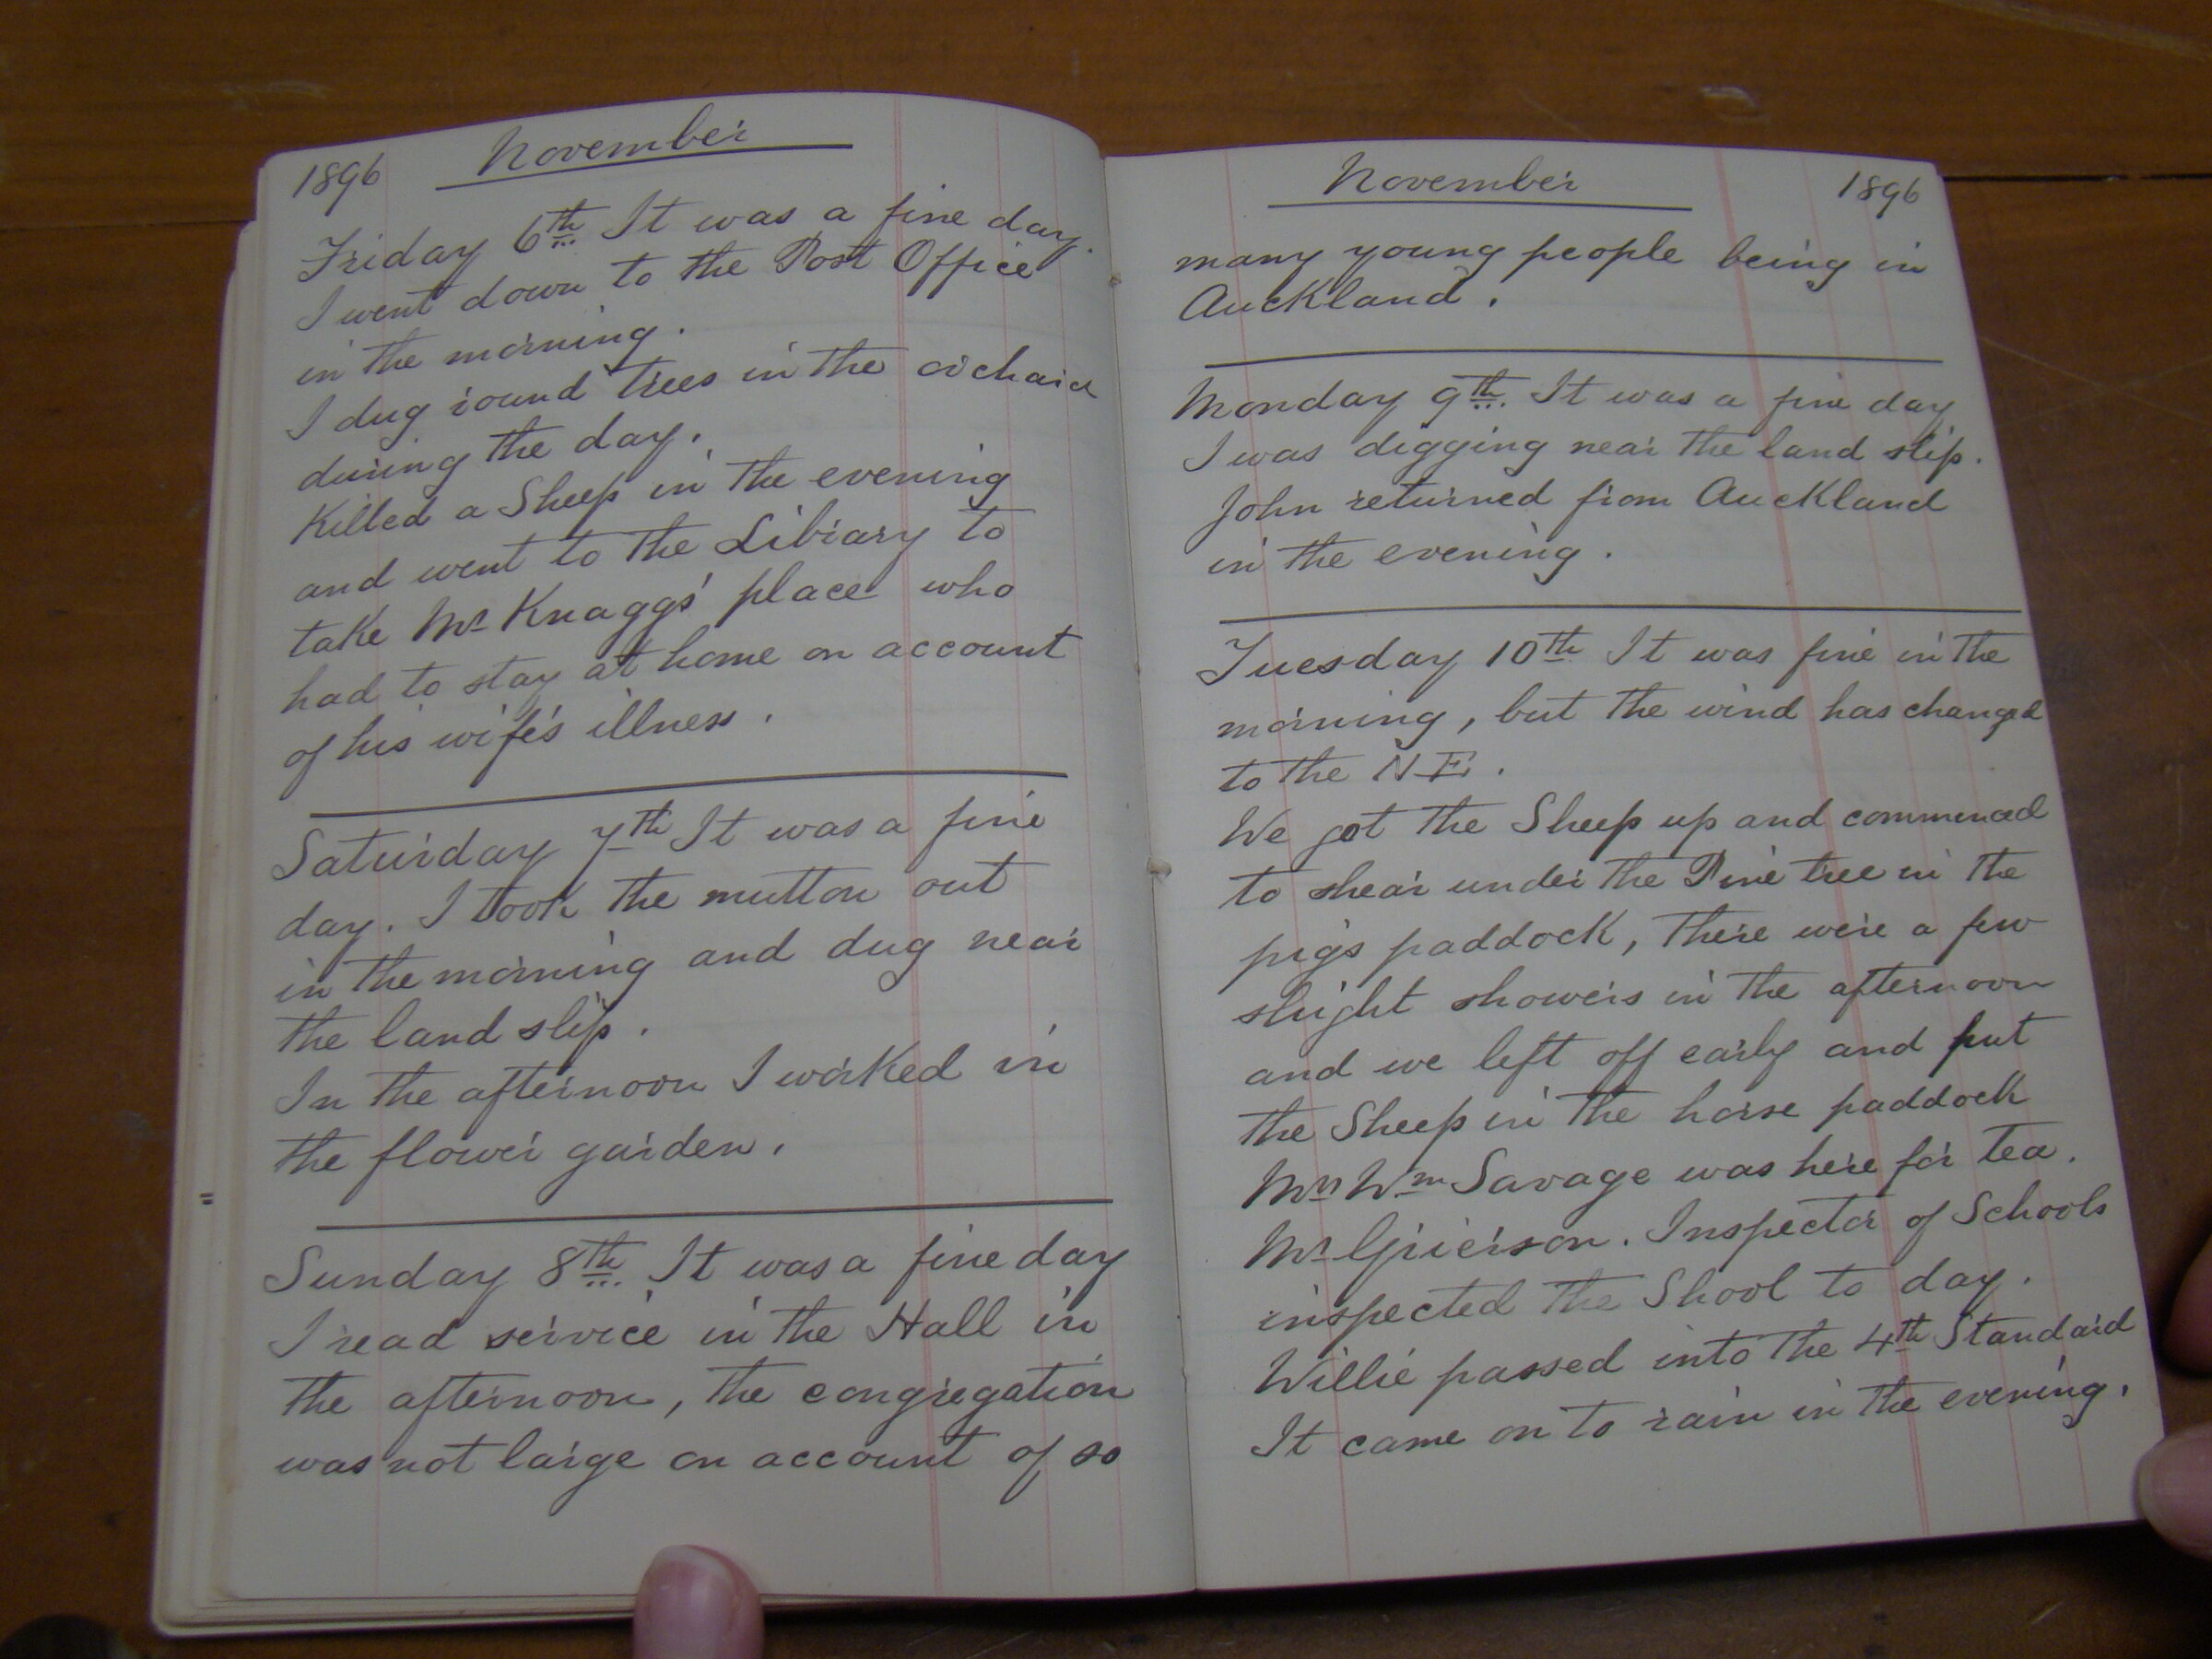 1896 November
Friday 6th It was a fine day.
I went down to the Post Office
in the morning.
I dug round trees in the orchard
during the day.
Killed a Sheep in the evening
and went to the Library to
take Mr Knaggs' place who
had to stay at home on account
of his wife's illness.
Saturday 7th It was a fine
day. I took the mutton out
in the morning and dug near
the land slip.
In the afternoon I worked in
the flower garden.
Sunday 8th It was a fine day
I read service in the Hall in
the afternoon, the congregation
was not large on account of so
November 1896
many young people being in
Auckland.
Monday 9th. It was a fine day
I was digging near the land slip.
John returned from Auckland
in the evening.
Tuesday 10th It was fine in the
morning, but the wind has changed
to the N E.
We got the Sheep up and commenced
to shear under the Pine tree in the
pigs paddock, There were a few
slight showers in the afternoon
and we left off early and put
the Sheep in the horse paddock
Mrs Wm Savage was here for tea.
Mr Grierson. Inspector of Schools
inspected the Shool to day.
Willie passed into the 4th Standard
It came on to rain in the evening.